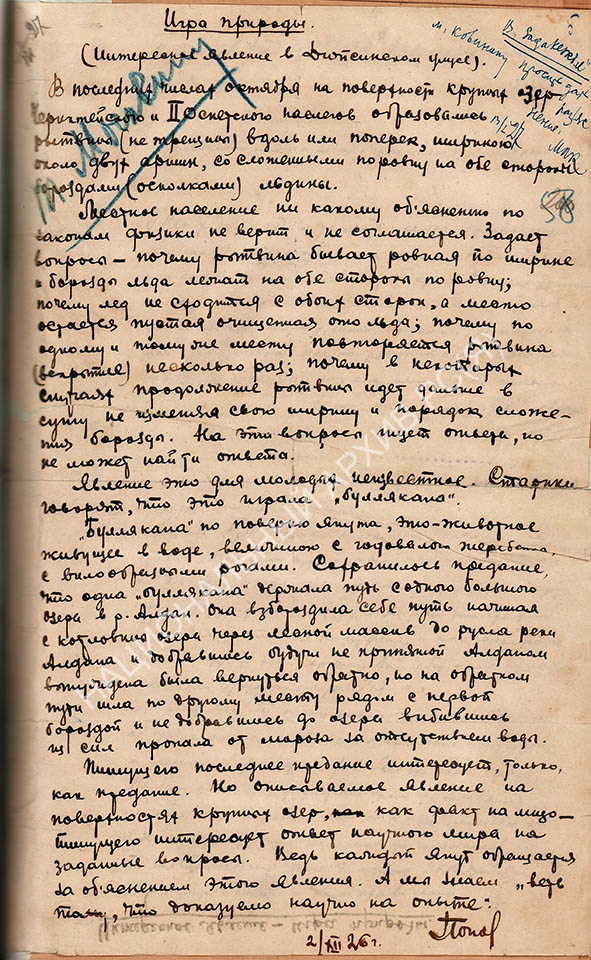 Игра природы.
(Интересное явление в Дюпсинском улусе).
В. Бадакетский
м. Ковинину просит дать
В последних числах октября на поверхности крупных озер
Чериктейского и II Оспетского наслегов образовались
рытвины (не трещины) вдоль или поперек, шириною
около двух аршин, со сложенными поровну на обе стороны
бороздами (осколками) льдины.
Местное население ни какому об'яснению по
законам физики не верит и не соглашается. Задает
вопросы – почему рытвина бывает ровная по ширине
и борозды льда лежат на обе стороны поровну;
почему лед не сходится с обоих сторон, а место
остается пустая очищенная ото льда; почему по
одному и тому же месту повторяется рытвина
(вскрытие) несколько раз; почему в некоторых
случаях продолжение рытвины идет дальше в
сушу не изменяя свою ширину и порядок сложе-
ния борозды. На эти вопросы ищет ответа, но
не может найти ответа.
Явление это для молодых неизвестное. Старики
говорят, что это играла „буллякана".
„Буллякана" по поверью якута, это-животное
живущее в воде, величиною с годовалого жеребенка,
с вилообразными рогами. Сохранилось предание,
что одна „буллякана" держала путь с одного большого
озера в р. Алдан. Она взбороздила себе путь начиная
с котловины озера через лесной массив до русла реки
Алдана и добравшись будучи не принятой Алданом
вынуждена была вернуться обратно, но на обратном
пути шла по другому месту рядом с первой
бороздой и не добравшись до озера выбившись
из сил пропала от мороза за отсутствием воды.
Пишущего последнее предание интересует, только,
как предание. Но описываемое явление на
поверхностях крупных озер, как факт на лицо –
пишущего интересует ответ научного мира на
заданные вопросы. Ведь каждый якут обращается
за об'яснением этого явления. А мы знаем „верь
тому, что доказуемо научно на опыте".
2/XII 26 г.
Попов